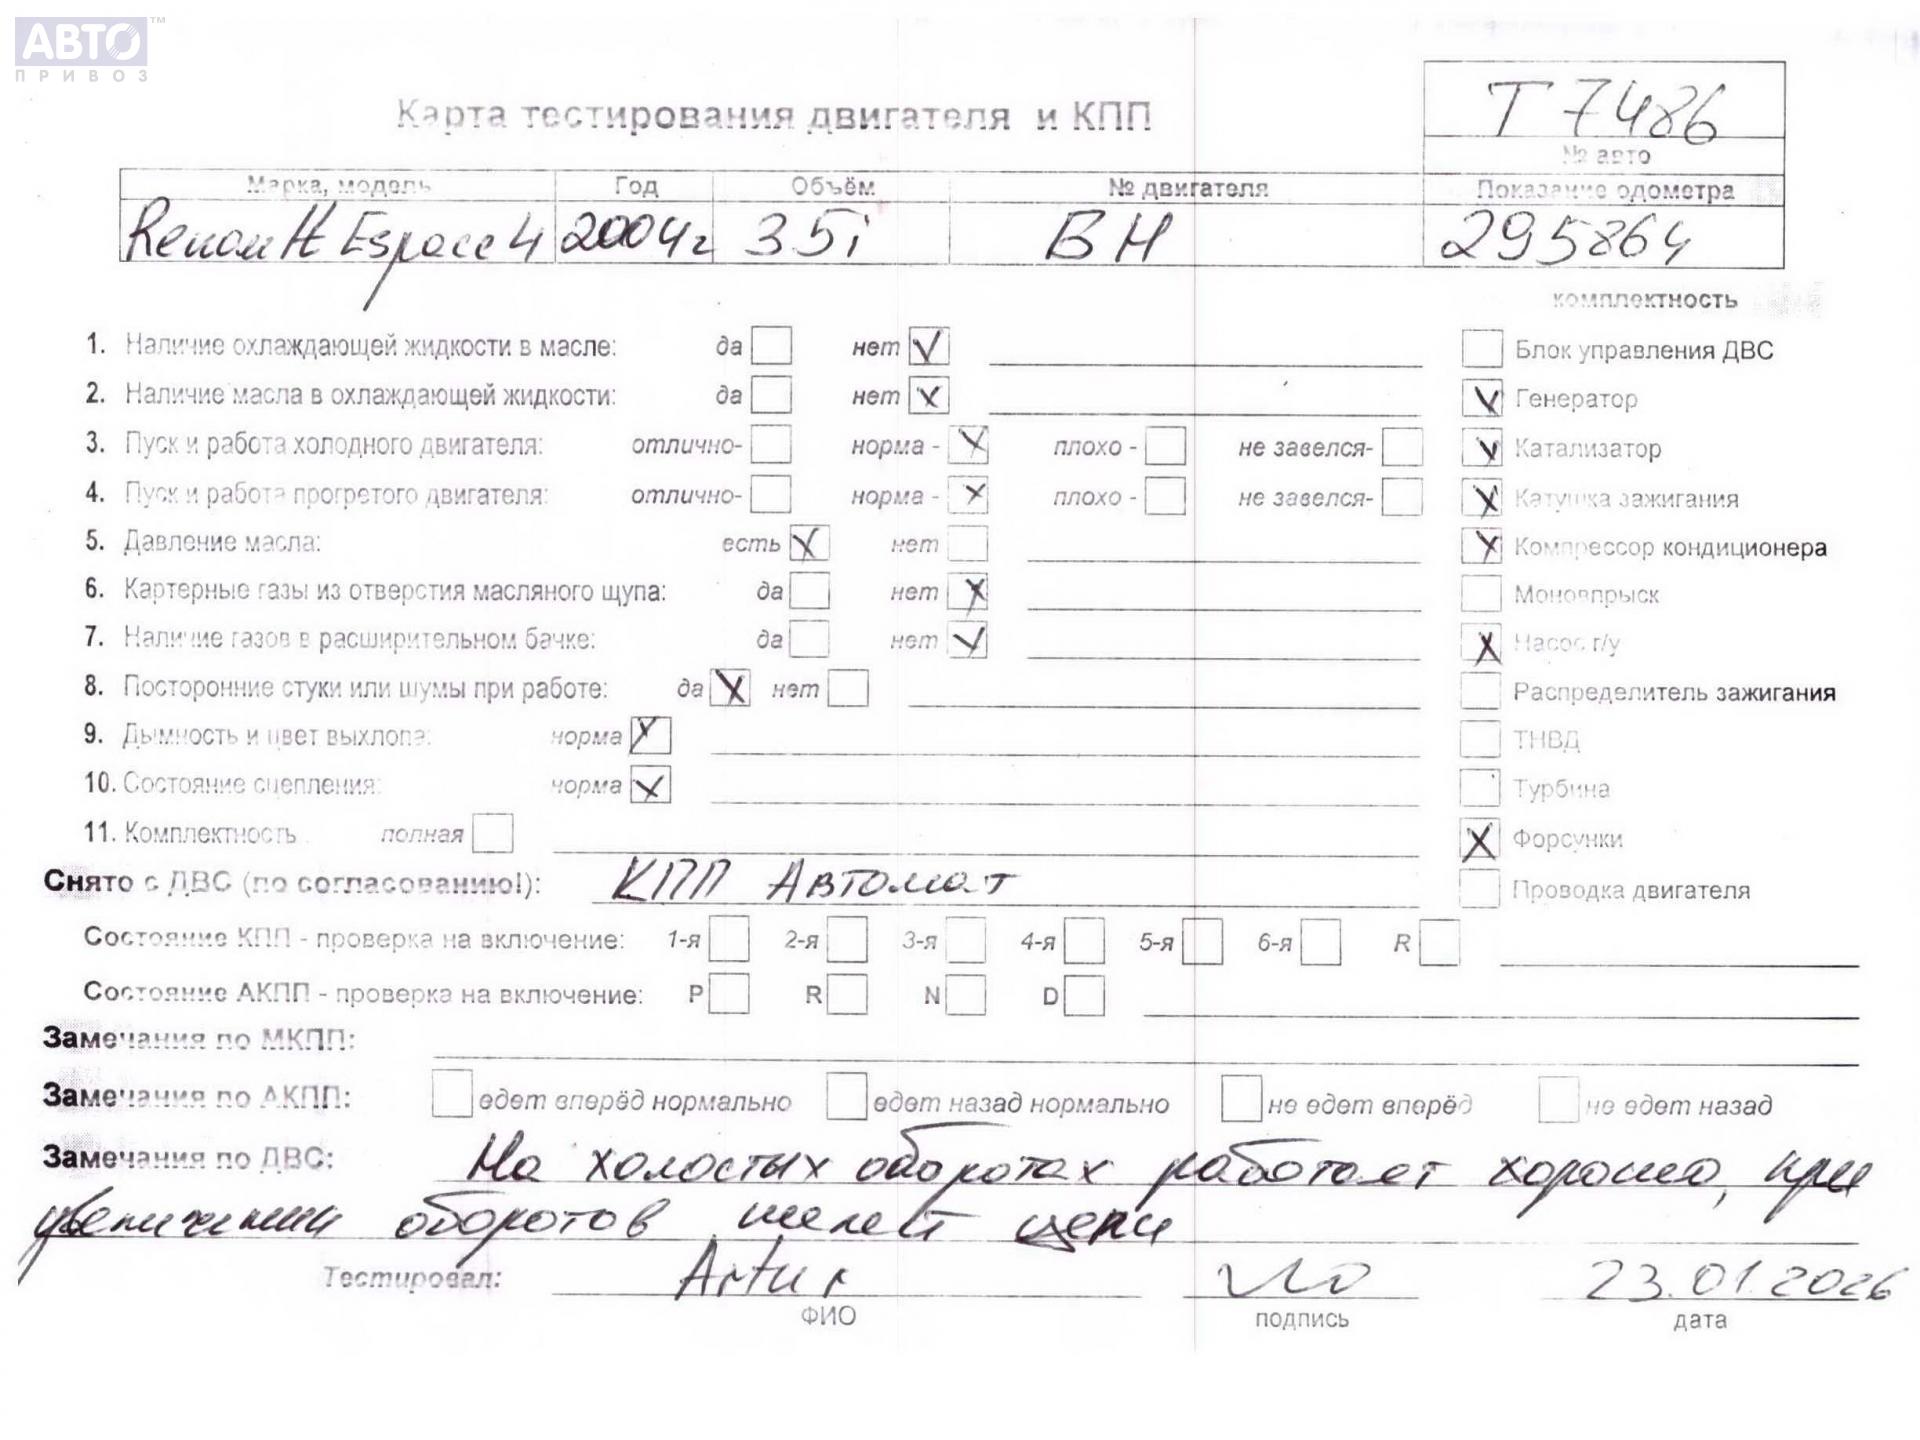 АВТО™
ПРИВОЗ
Карта тестирования двигателя и КПП
T 7486
№ авто
Марка, модель Год Объём № двигателя Показание одометра
Renault Espace 4 2004г 35i ВН 295864
комплектность
1. Наличие охлаждающей жидкости в масле: да нет Блок управления ДВС
2. Наличие масла в охлаждающей жидкости: да нет Генератор
3. Пуск и работа холодного двигателя: отлично- норма - плохо - не завелся- Катализатор
4. Пуск и работа прогретого двигателя: отлично- норма - плохо - не завелся- Катушка зажигания
5. Давление масла: есть нет Компрессор кондиционера
6. Картерные газы из отверстия масляного щупа: да нет Моновпрыск
7. Наличие газов в расширительном бачке: да нет Насос г/у
8. Посторонние стуки или шумы при работе: да нет Распределитель зажигания
9. Дымность и цвет выхлопа: норма ТНВД
10. Состояние сцепления: норма Турбина
11. Комплектность полная Форсунки
Снято с ДВС (по согласованию!): КПП Автомат Проводка двигателя
Состояние КПП - проверка на включение: 1-я 2-я 3-я 4-я 5-я 6-я R
Состояние АКПП - проверка на включение: P R N D
Замечания по МКПП:
Замечания по АКПП: едет вперёд нормально едет назад нормально не едет вперёд не едет назад
Замечания по ДВС: На холостых оборотах работает хорошо, при
увеличении оборотов шелест цепи
Тестировал: Artur 23.01.2026
ФИО подпись дата